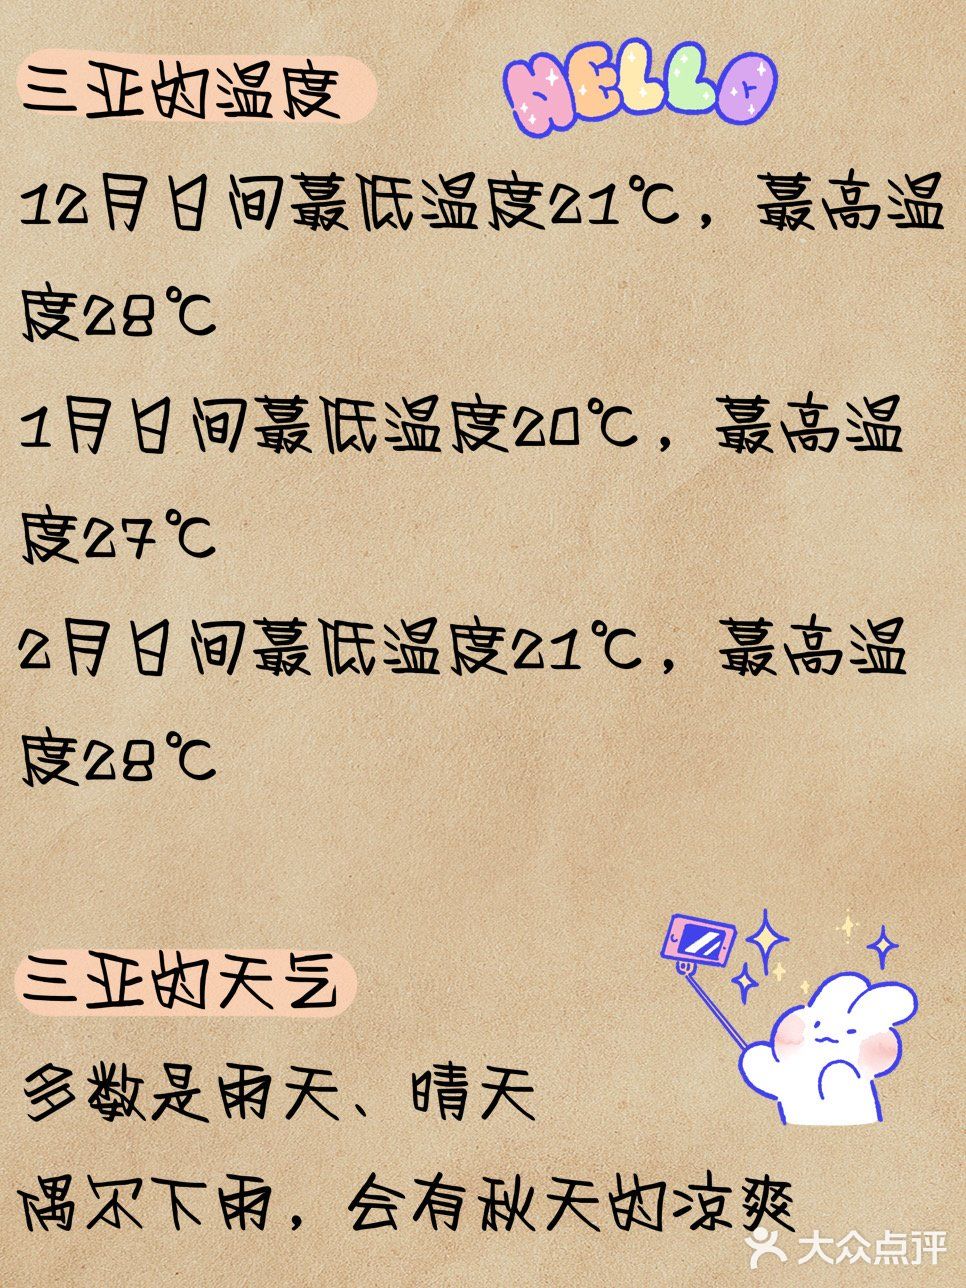 三亚的温度
HELLO
12月日间最低温度21℃，最高温
度28℃
1月日间最低温度20℃，最高温
度27℃
2月日间最低温度21℃，最高温
度28℃
三亚的天气
多数是雨天、晴天
偶尔下雨，会有秋天的凉爽
大众点评